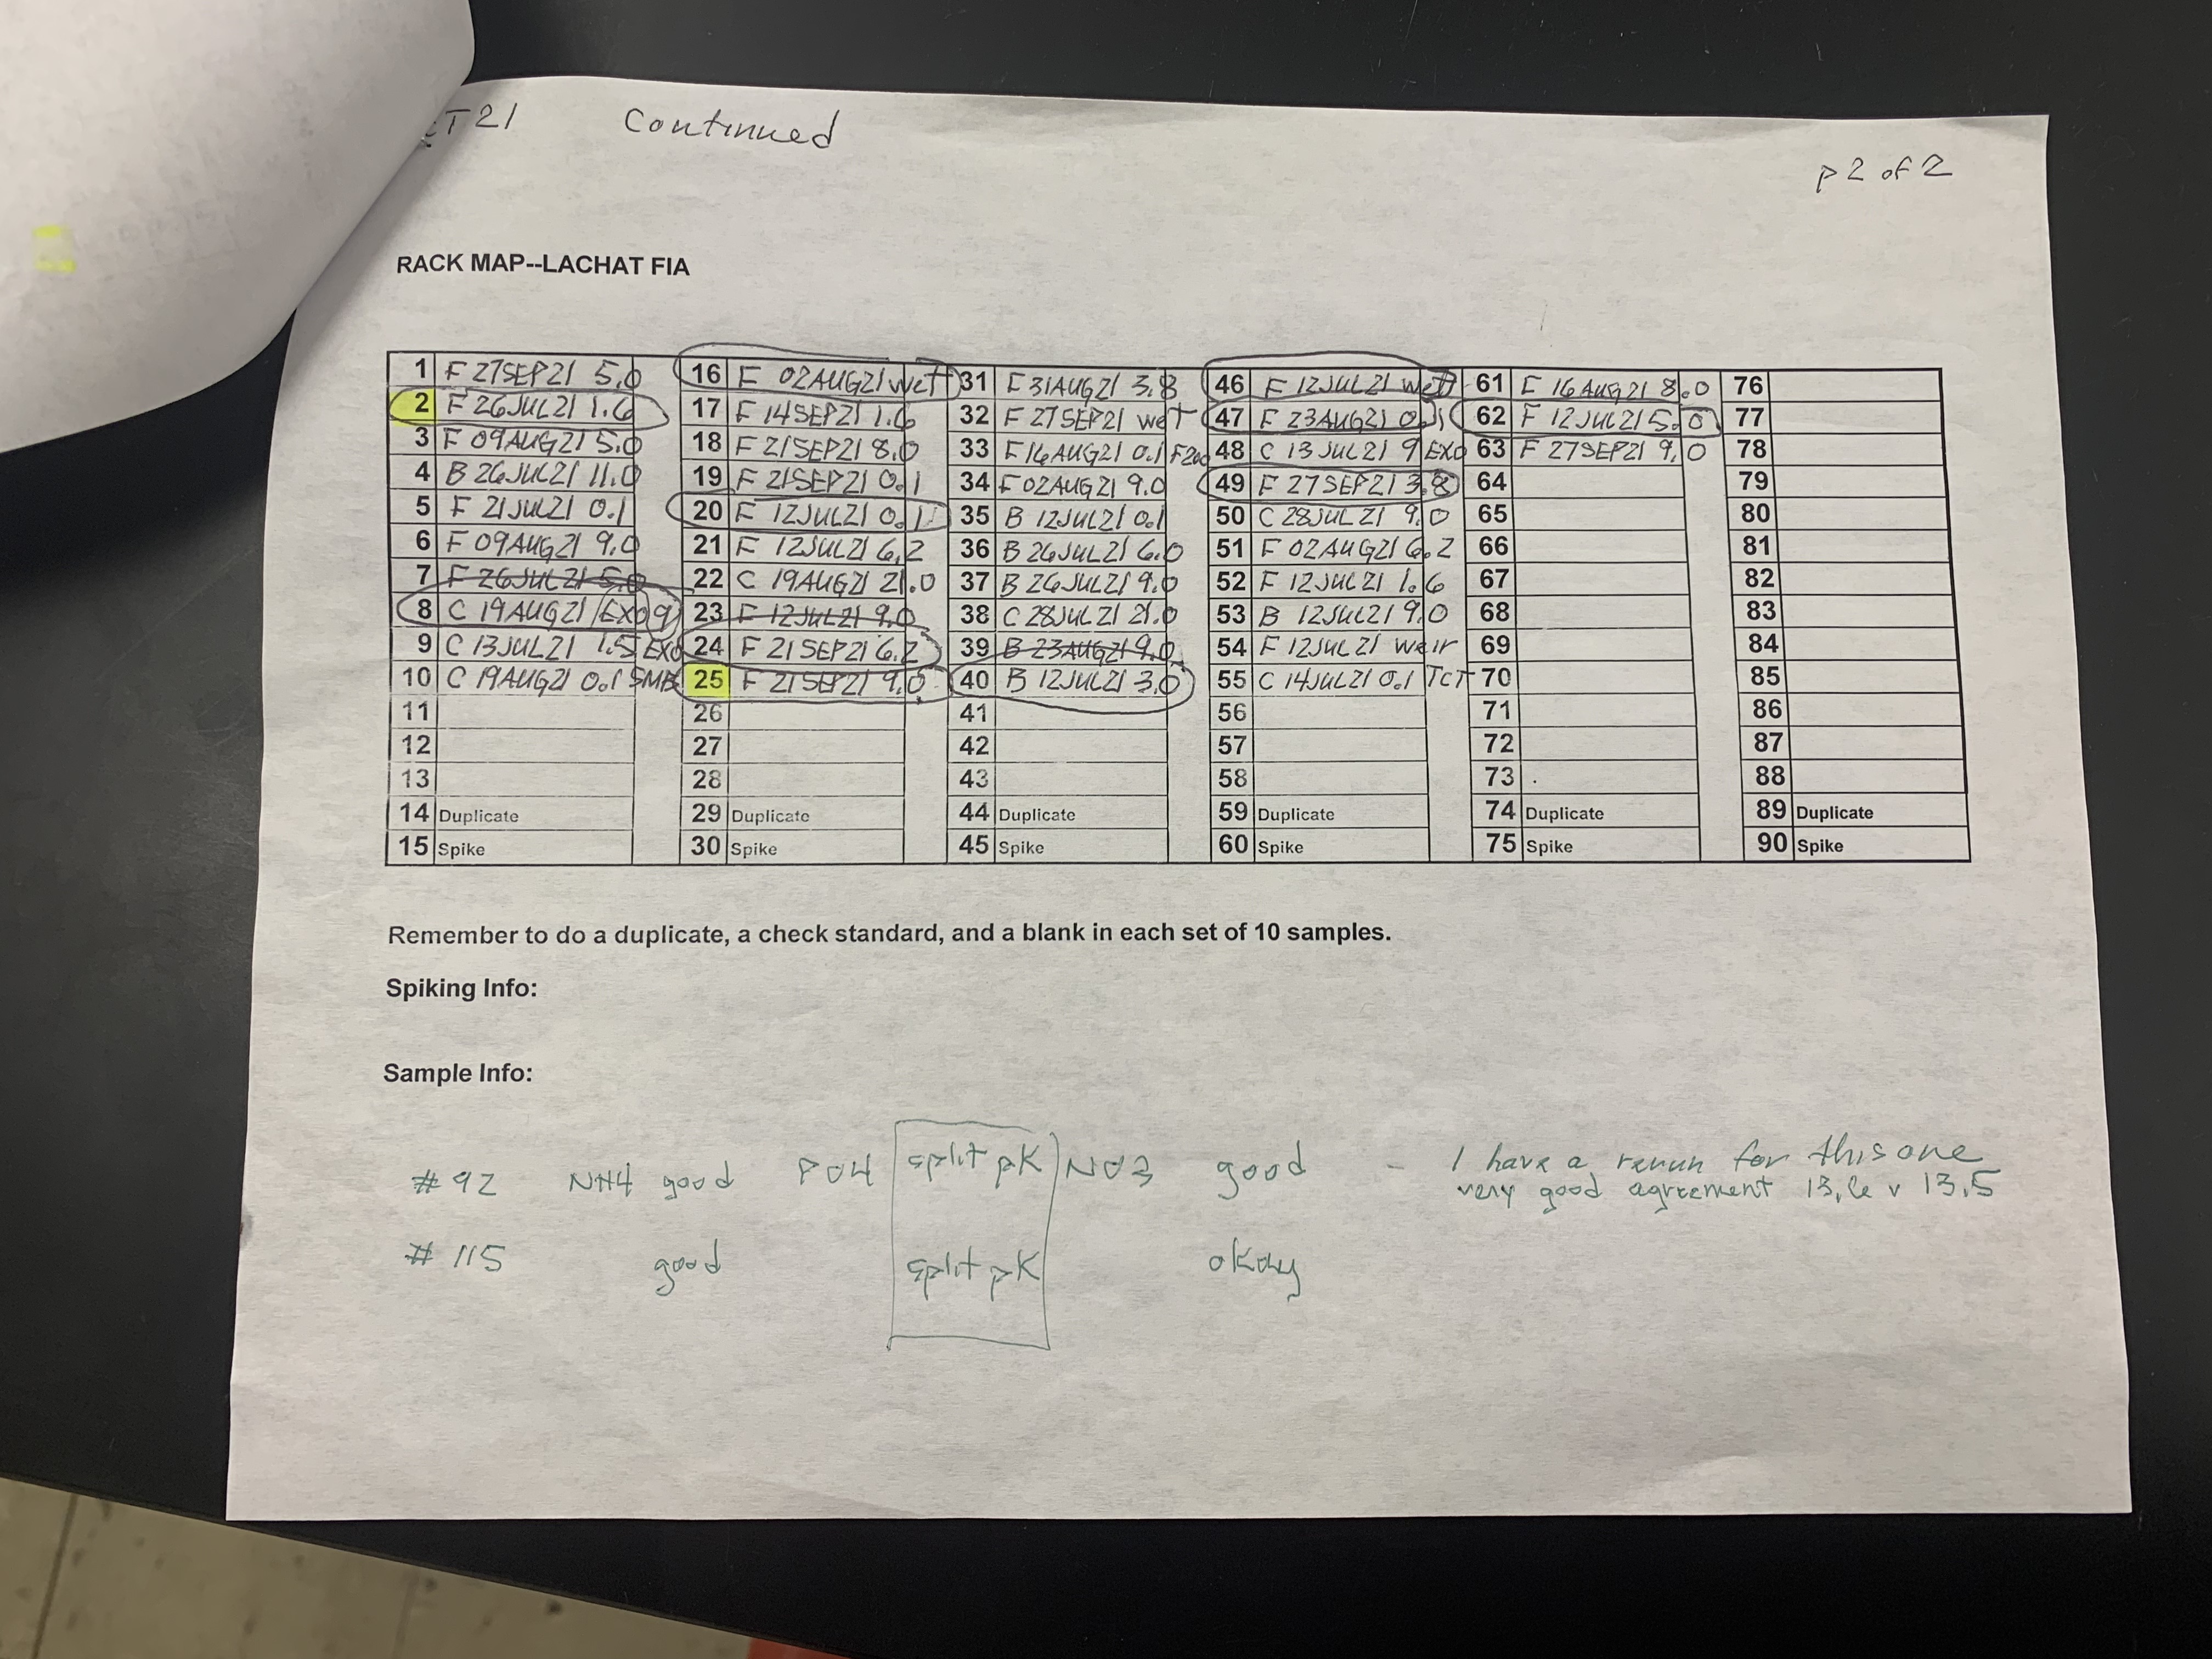 CT 21 Continued
p 2 of 2
RACK MAP--LACHAT FIA
1 F 27SEP21 5.0 16 F 02AUG21 wet 31 F 31AUG21 3.8 46 F 12JUL21 wet 61 F 16AUG21 8.0 76
2 F 26JUL21 1.6 17 F 14SEP21 1.6 32 F 27SEP21 wet 47 F 23AUG21 0.1 62 F 12JUL21 5.0 77
3 F 09AUG21 5.0 18 F 21SEP21 8.0 33 F 16AUG21 0.1 F200 48 C 13JUL21 9 EXO 63 F 27SEP21 9.0 78
4 B 26JUL21 11.0 19 F 21SEP21 0.1 34 F 02AUG21 9.0 49 F 27SEP21 3.8 64 79
5 F 21JUL21 0.1 20 F 12JUL21 0.1 35 B 12JUL21 0.1 50 C 28JUL21 9.0 65 80
6 F 09AUG21 9.0 21 F 12JUL21 6.2 36 B 26JUL21 6.0 51 F 02AUG21 6.2 66 81
7 F 26JUL21 5.0 22 C 19AUG21 21.0 37 B 26JUL21 9.0 52 F 12JUL21 1.6 67 82
8 C 19AUG21 Exo 9 23 F 12JUL21 9.0 38 C 28JUL21 21.0 53 B 12JUL21 9.0 68 83
9 C 13JUL21 1.5 EXO 24 F 21SEP21 6.2 39 B 23AUG21 9.0 54 F 12JUL21 weir 69 84
10 C 19AUG21 0.1 SMB 25 F 21SEP21 9.0 40 B 12JUL21 3.0 55 C 14JUL21 0.1 TCT 70 85
11 26 41 56 71 86
12 27 42 57 72 87
13 28 43 58 73 88
14 Duplicate 29 Duplicate 44 Duplicate 59 Duplicate 74 Duplicate 89 Duplicate
15 Spike 30 Spike 45 Spike 60 Spike 75 Spike 90 Spike
Remember to do a duplicate, a check standard, and a blank in each set of 10 samples.
Spiking Info:
Sample Info:
# 92 NH4 good PO4 split pk NO3 good - I have a rerun for this one
very good agreement 13.6 v 13.5
# 115 good split pk okay